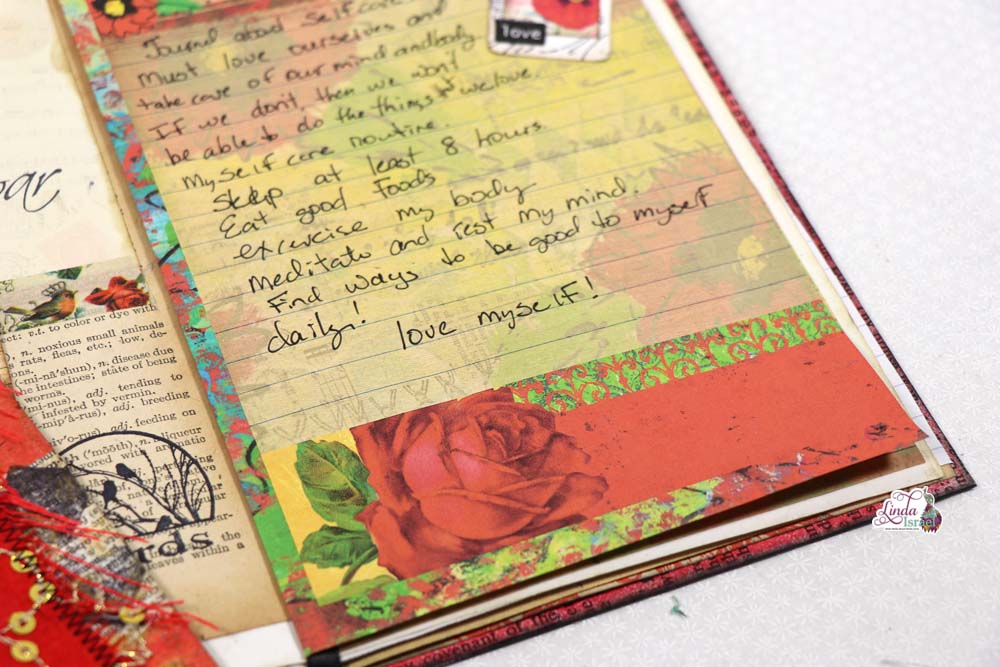 Journal about self care.
Must love ourselves and
take care of our mind and body
If we don't, then we won't
be able to do the things we love.
My self care routine.
Sleep at least 8 hours.
Eat good Foods
exercise my body
meditate and rest my mind.
Find ways to be good to myself
daily!
love myself!
love
ect: v.t. to color or dye with
), n. noxious small animals
rats, fleas, etc.; low, de-
(-mi-nā'shun), n. disease due
the intestines; state of being
worms.
(-mi-nus), adj. tending to
infested by vermin.
-mip'á-rus), adj. breeding
iv'o-rus), adj. feeding on
th ('mōōth), n. liqueur
vored with aromatic
rds
leaves within a
covenant of the
Linda
Israel